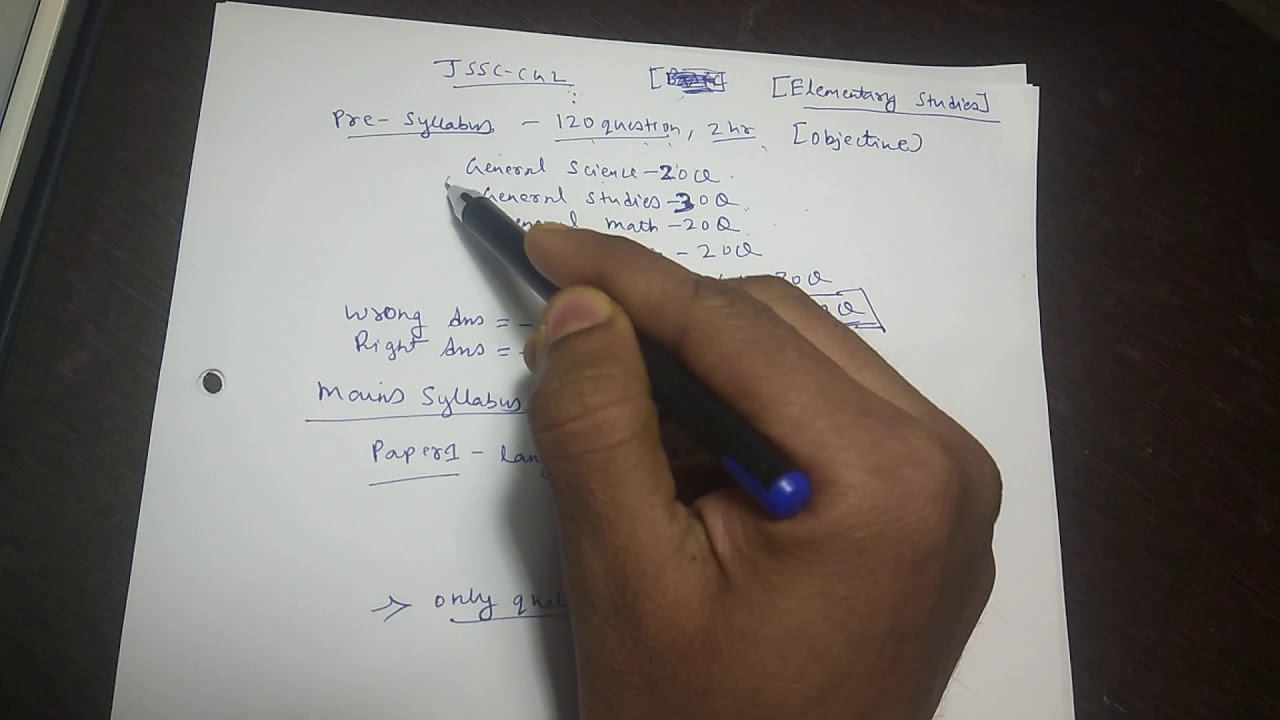 JSSC-CGL [Elementary Studies]
Pre-Syllabus - 120 question, 2 hr, [Objective]
General Science - 20Q
General Studies - 30Q
math - 20Q
- 20Q
Q
Q
Wrong Ans = -
Right Ans =
Mains Syllabus
Paper1 -
⇒ only